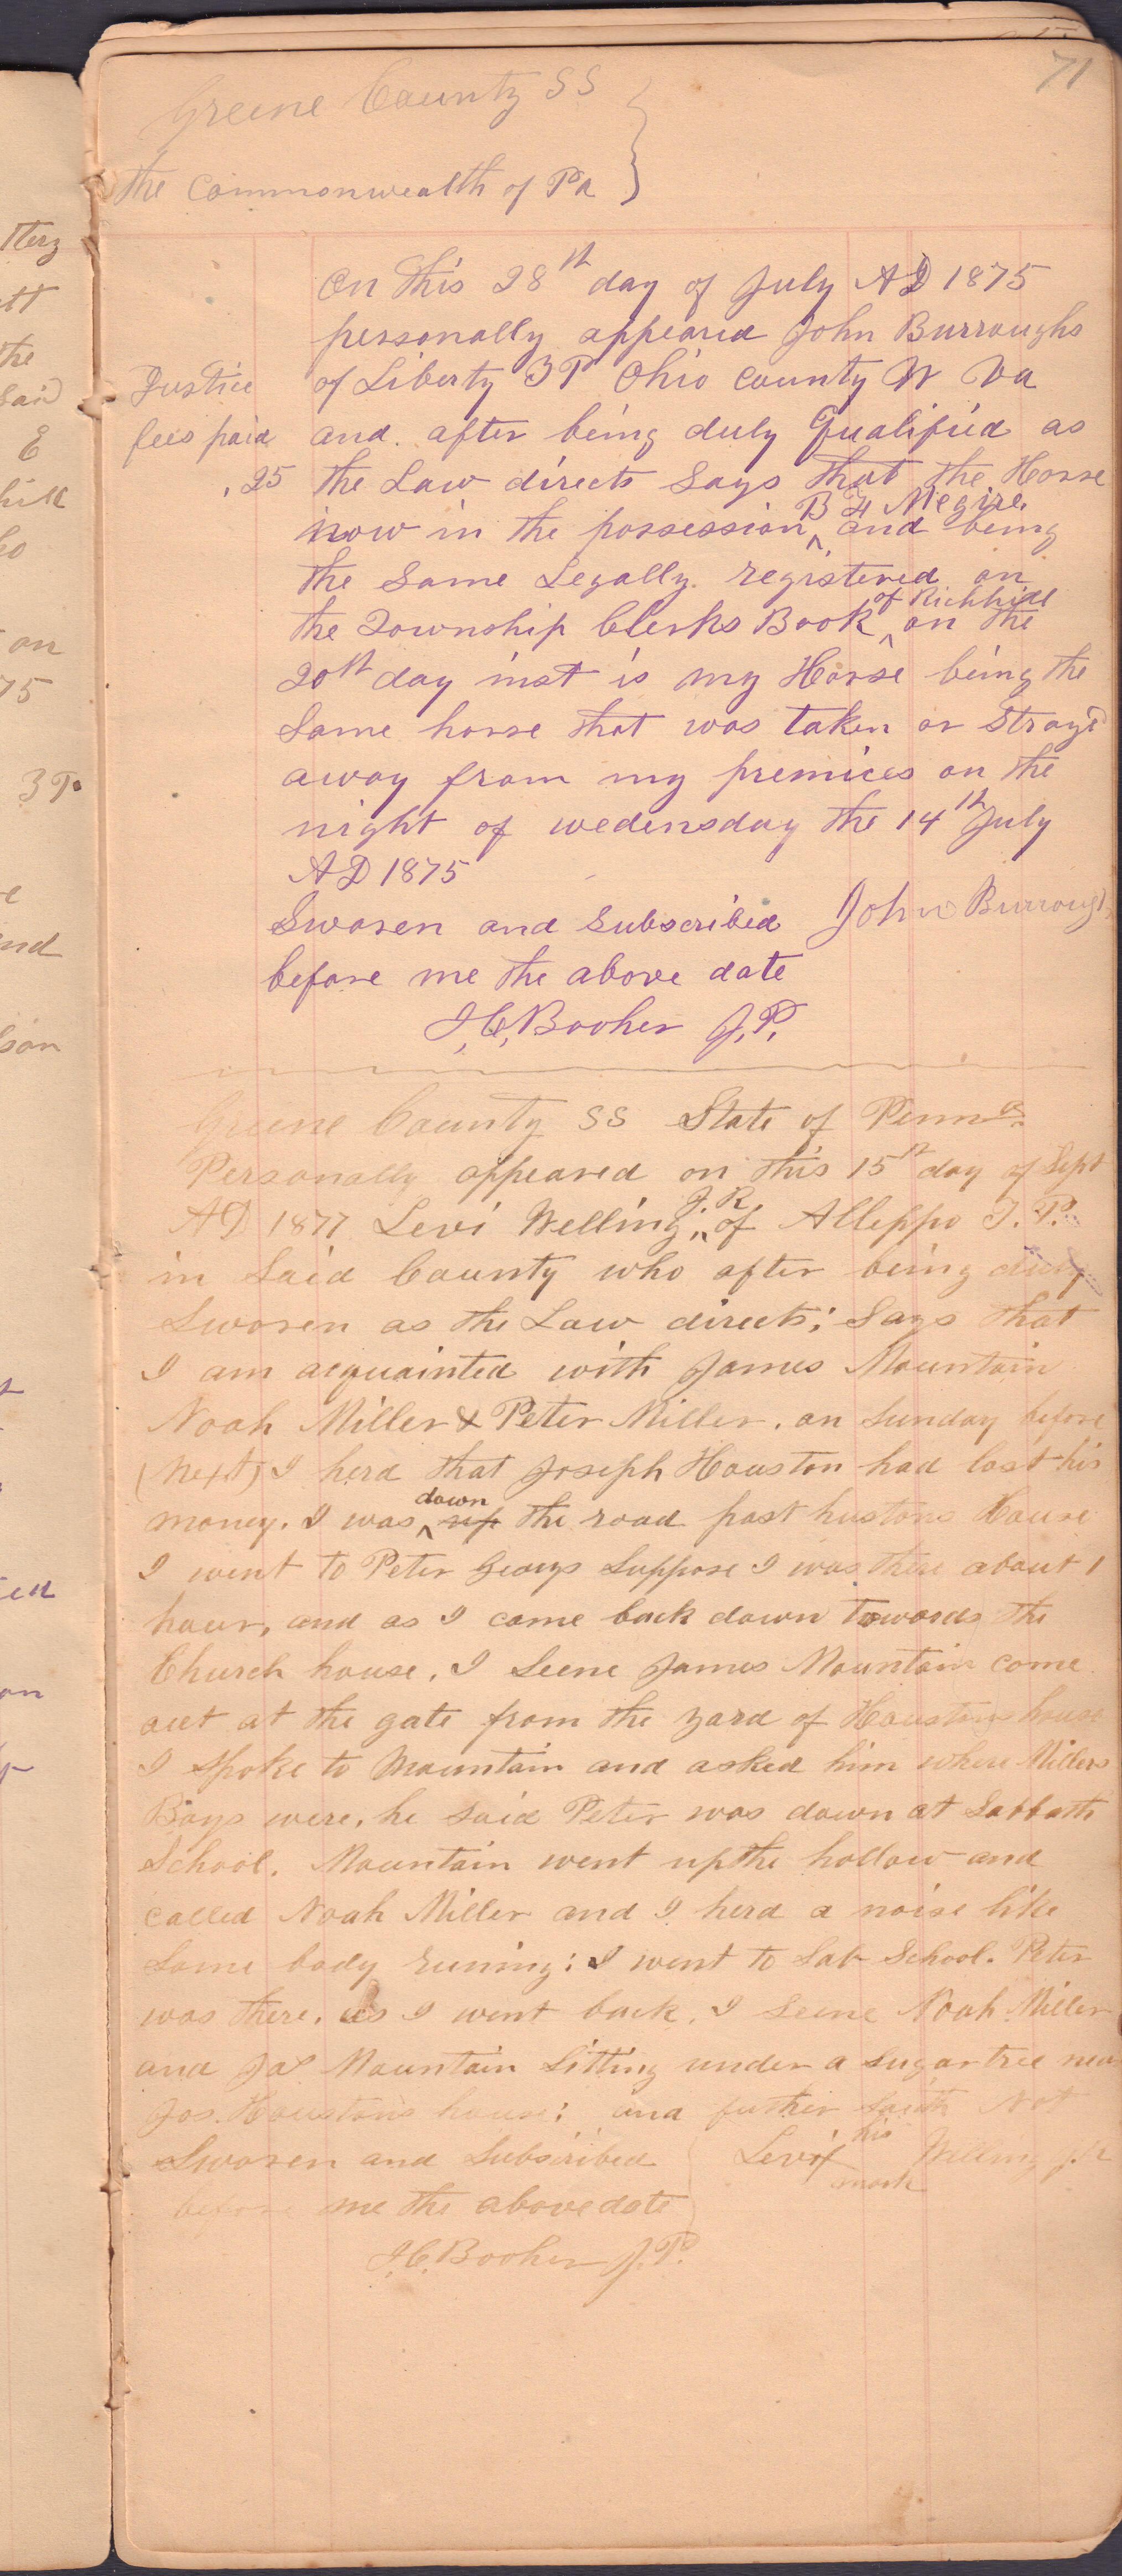 71
Greene County SS
the Commonwealth of Pa
On this 28th day of July AD 1875
personally appeared John Burroughs
Justice of Liberty TP Ohio County W Va
fees paid and. after being duly Qualified as
.25 the Law directs Says that the Horse
now in the possession ^ B H Megire. and being
the Same Legally registered on
the Township Clerks Book ^ of Richhill on the
20th day inst is my Horse being the
Same horse that was taken or Strayd
away from my premices on the
night of wedensday the 14th July
AD 1875
Sworen and Subscribed John Burroughs
before me the above date
J,C,Booher J.P.
Greene County SS State of Penna
Personally appeared on this 15th day of Sept
AD 1877 Levi Welling, ^ J.R of Alleppo T.P.
in Said County who after being duly
Sworen as the Law directs; Says that
I am acquainted with James Mountain
Noah Miller & Peter Miller. on Sunday before
(Next) I herd that Joseph Houston had lost his
money. I was ^ down up the road past hustons House
I went to Peter Grays Suppose I was there about 1
hour, and as I come back down towards the
Church house. I Seene James Mountain come
out at the gate from the yard of Houstons house
I Spoke to Mountain and asked him where Millers
Boys were. he Said Peter was down at Sabbath
School. Mountain went up the hollow and
Called Noah Miller and I herd a noise like
Some body runing; I went to Sab School. Peter
was there. as I went back. I Seene Noah Miller
and Jas Mountain Sitting under a Sugartree near
Jos. Houstons house; and further Saith Not
Sworen and Subscribed Levi X his mark Welling J.R
before me the above date
J.C.Booher J.P.